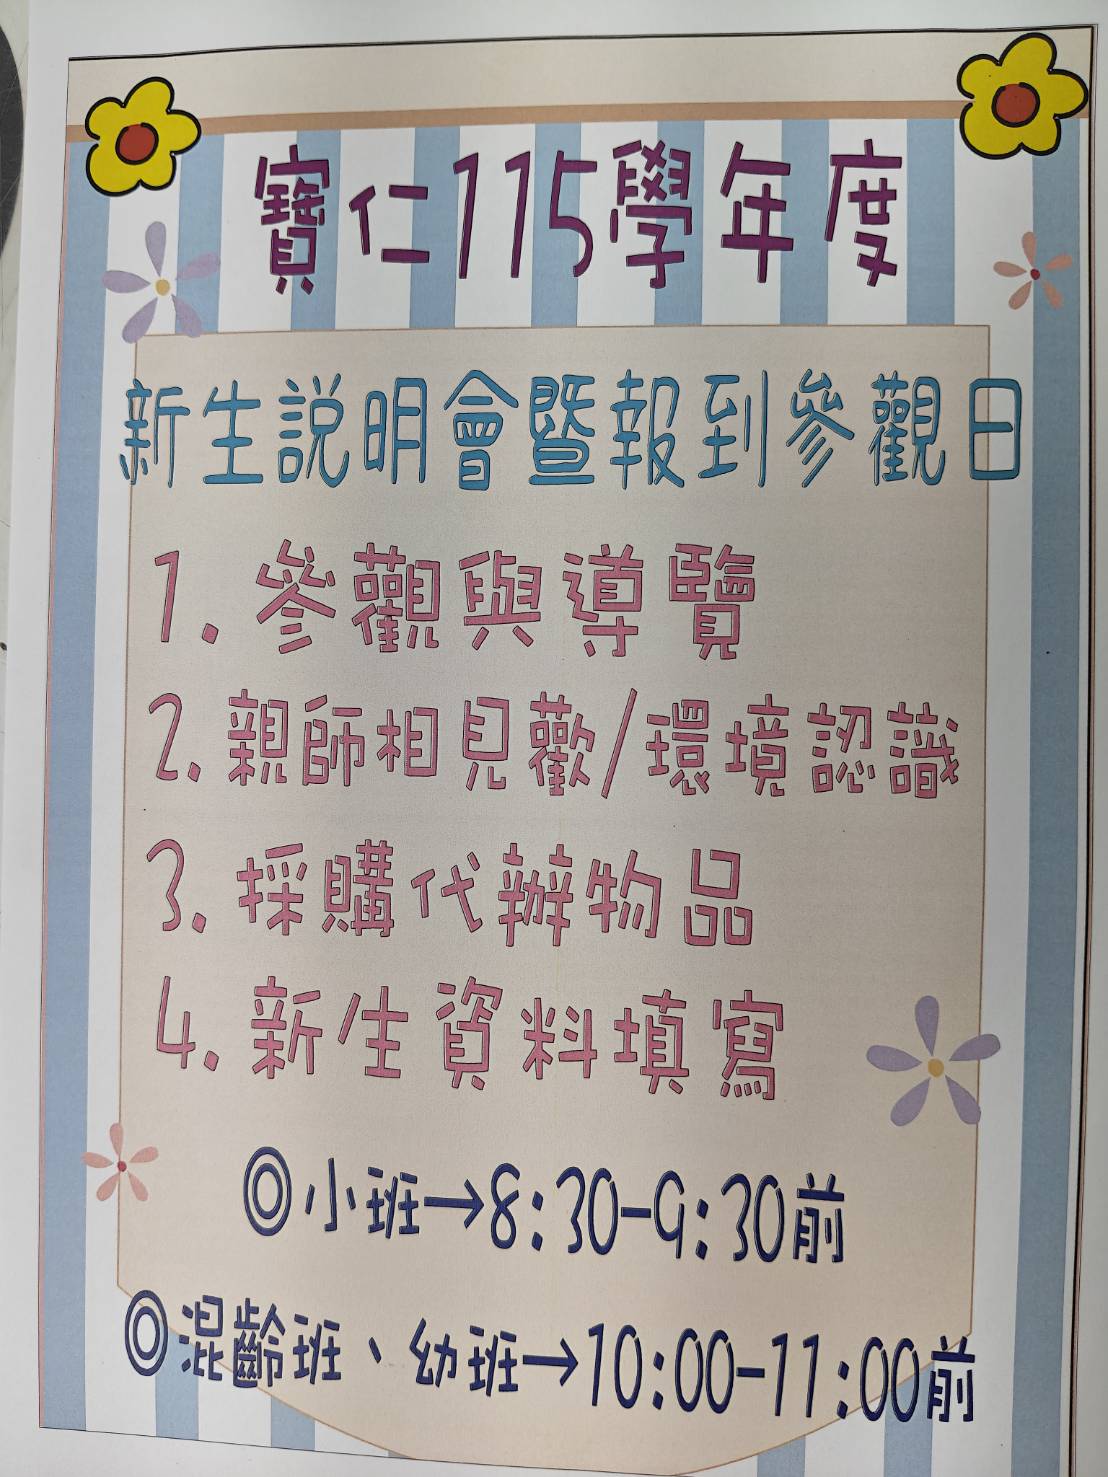 寶仁115學年度
新生説明會暨報到參觀日
1. 參觀與導覽
2. 親師相見歡/環境認識
3. 採購代辦物品
4. 新生資料填寫
◎小班→8:30-9:30前
◎混齡班、幼班→10:00-11:00前